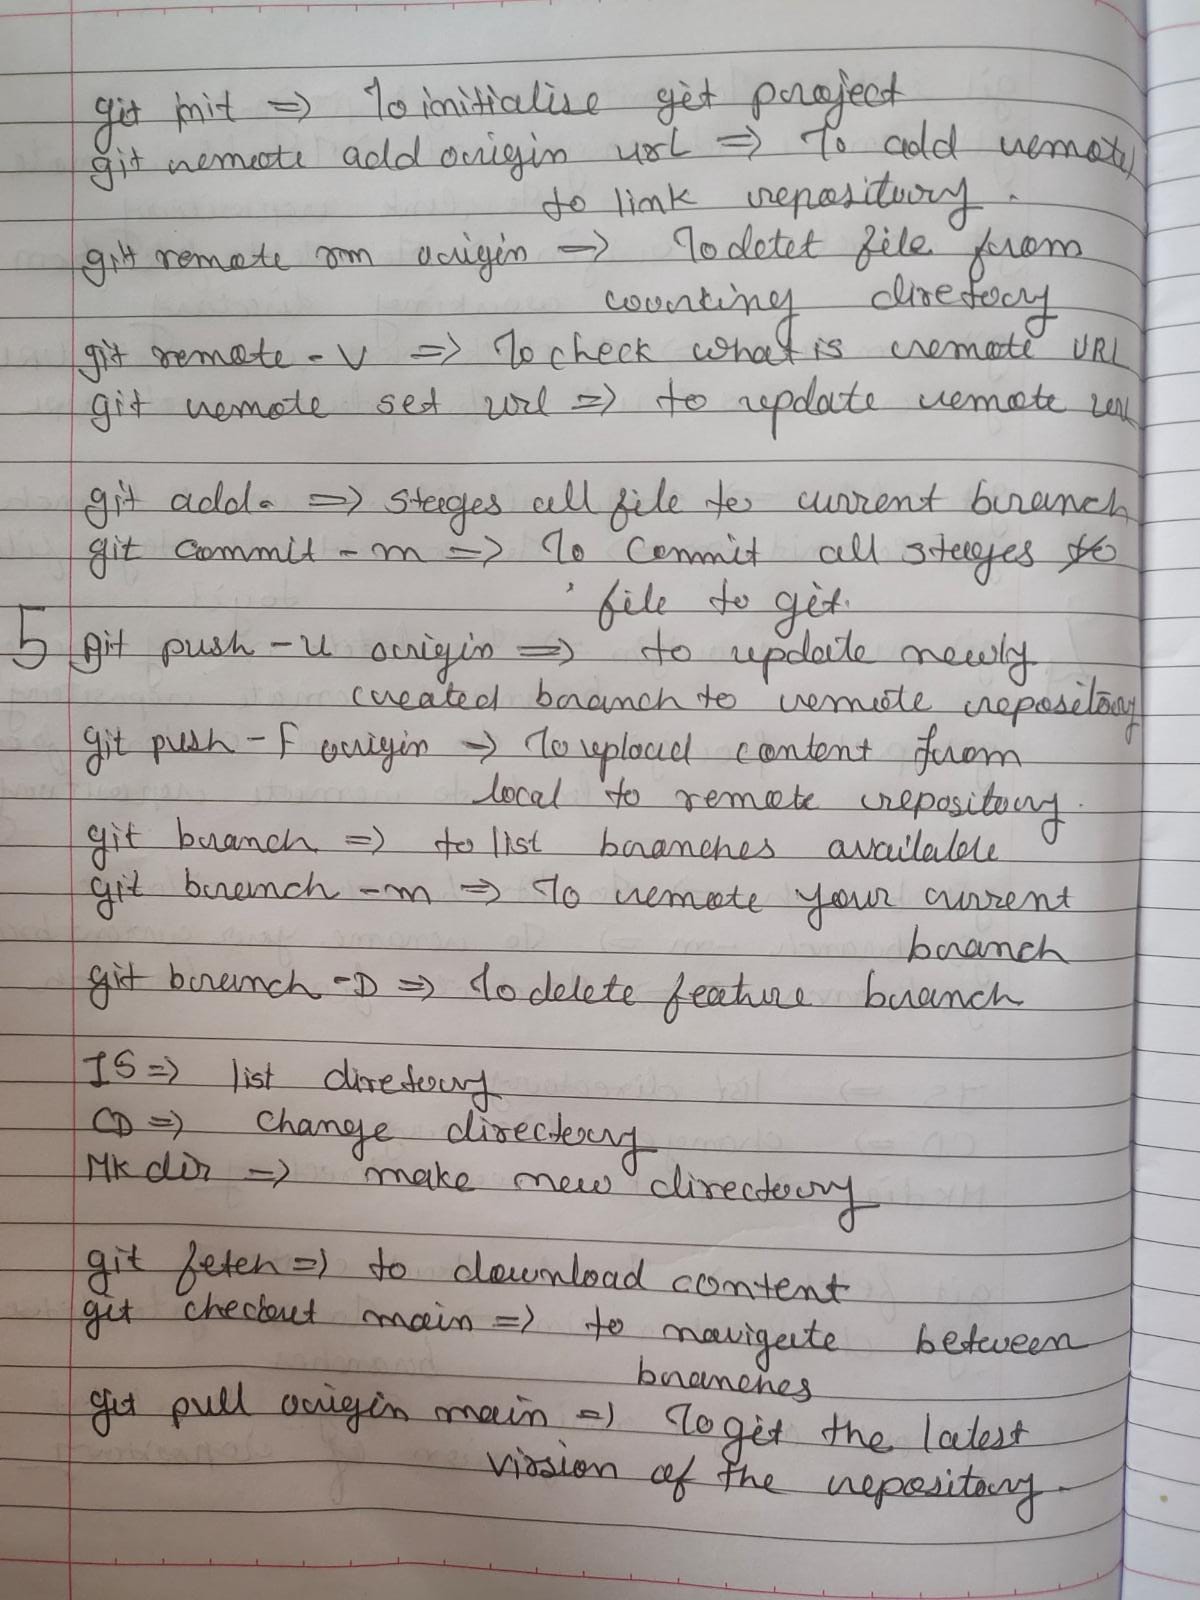 git init => To initialise git project
git remote add origin url => To add remote
to link repository.
git remote rm origin => To detet file from
working diretory
git remote -v => To check what is remote URL
git remote set url => to update remote url
git add. => stages all file to current branch
git commit -m => To commit all stages to
file to git.
5 git push -u origin => to update newly
created branch to remote repository
git push -f origin => To upload content from
local to remote repository.
git branch => to list branches available
git branch -m => To remote your current
branch
git branch -D => To delete feature branch
IS => list diretory
CD => change directory
Mkdir => make new directory
git fetch => to download content
git checkout main => to navigate between
branches
git pull origin main => To git the latest
virsion of the repository.